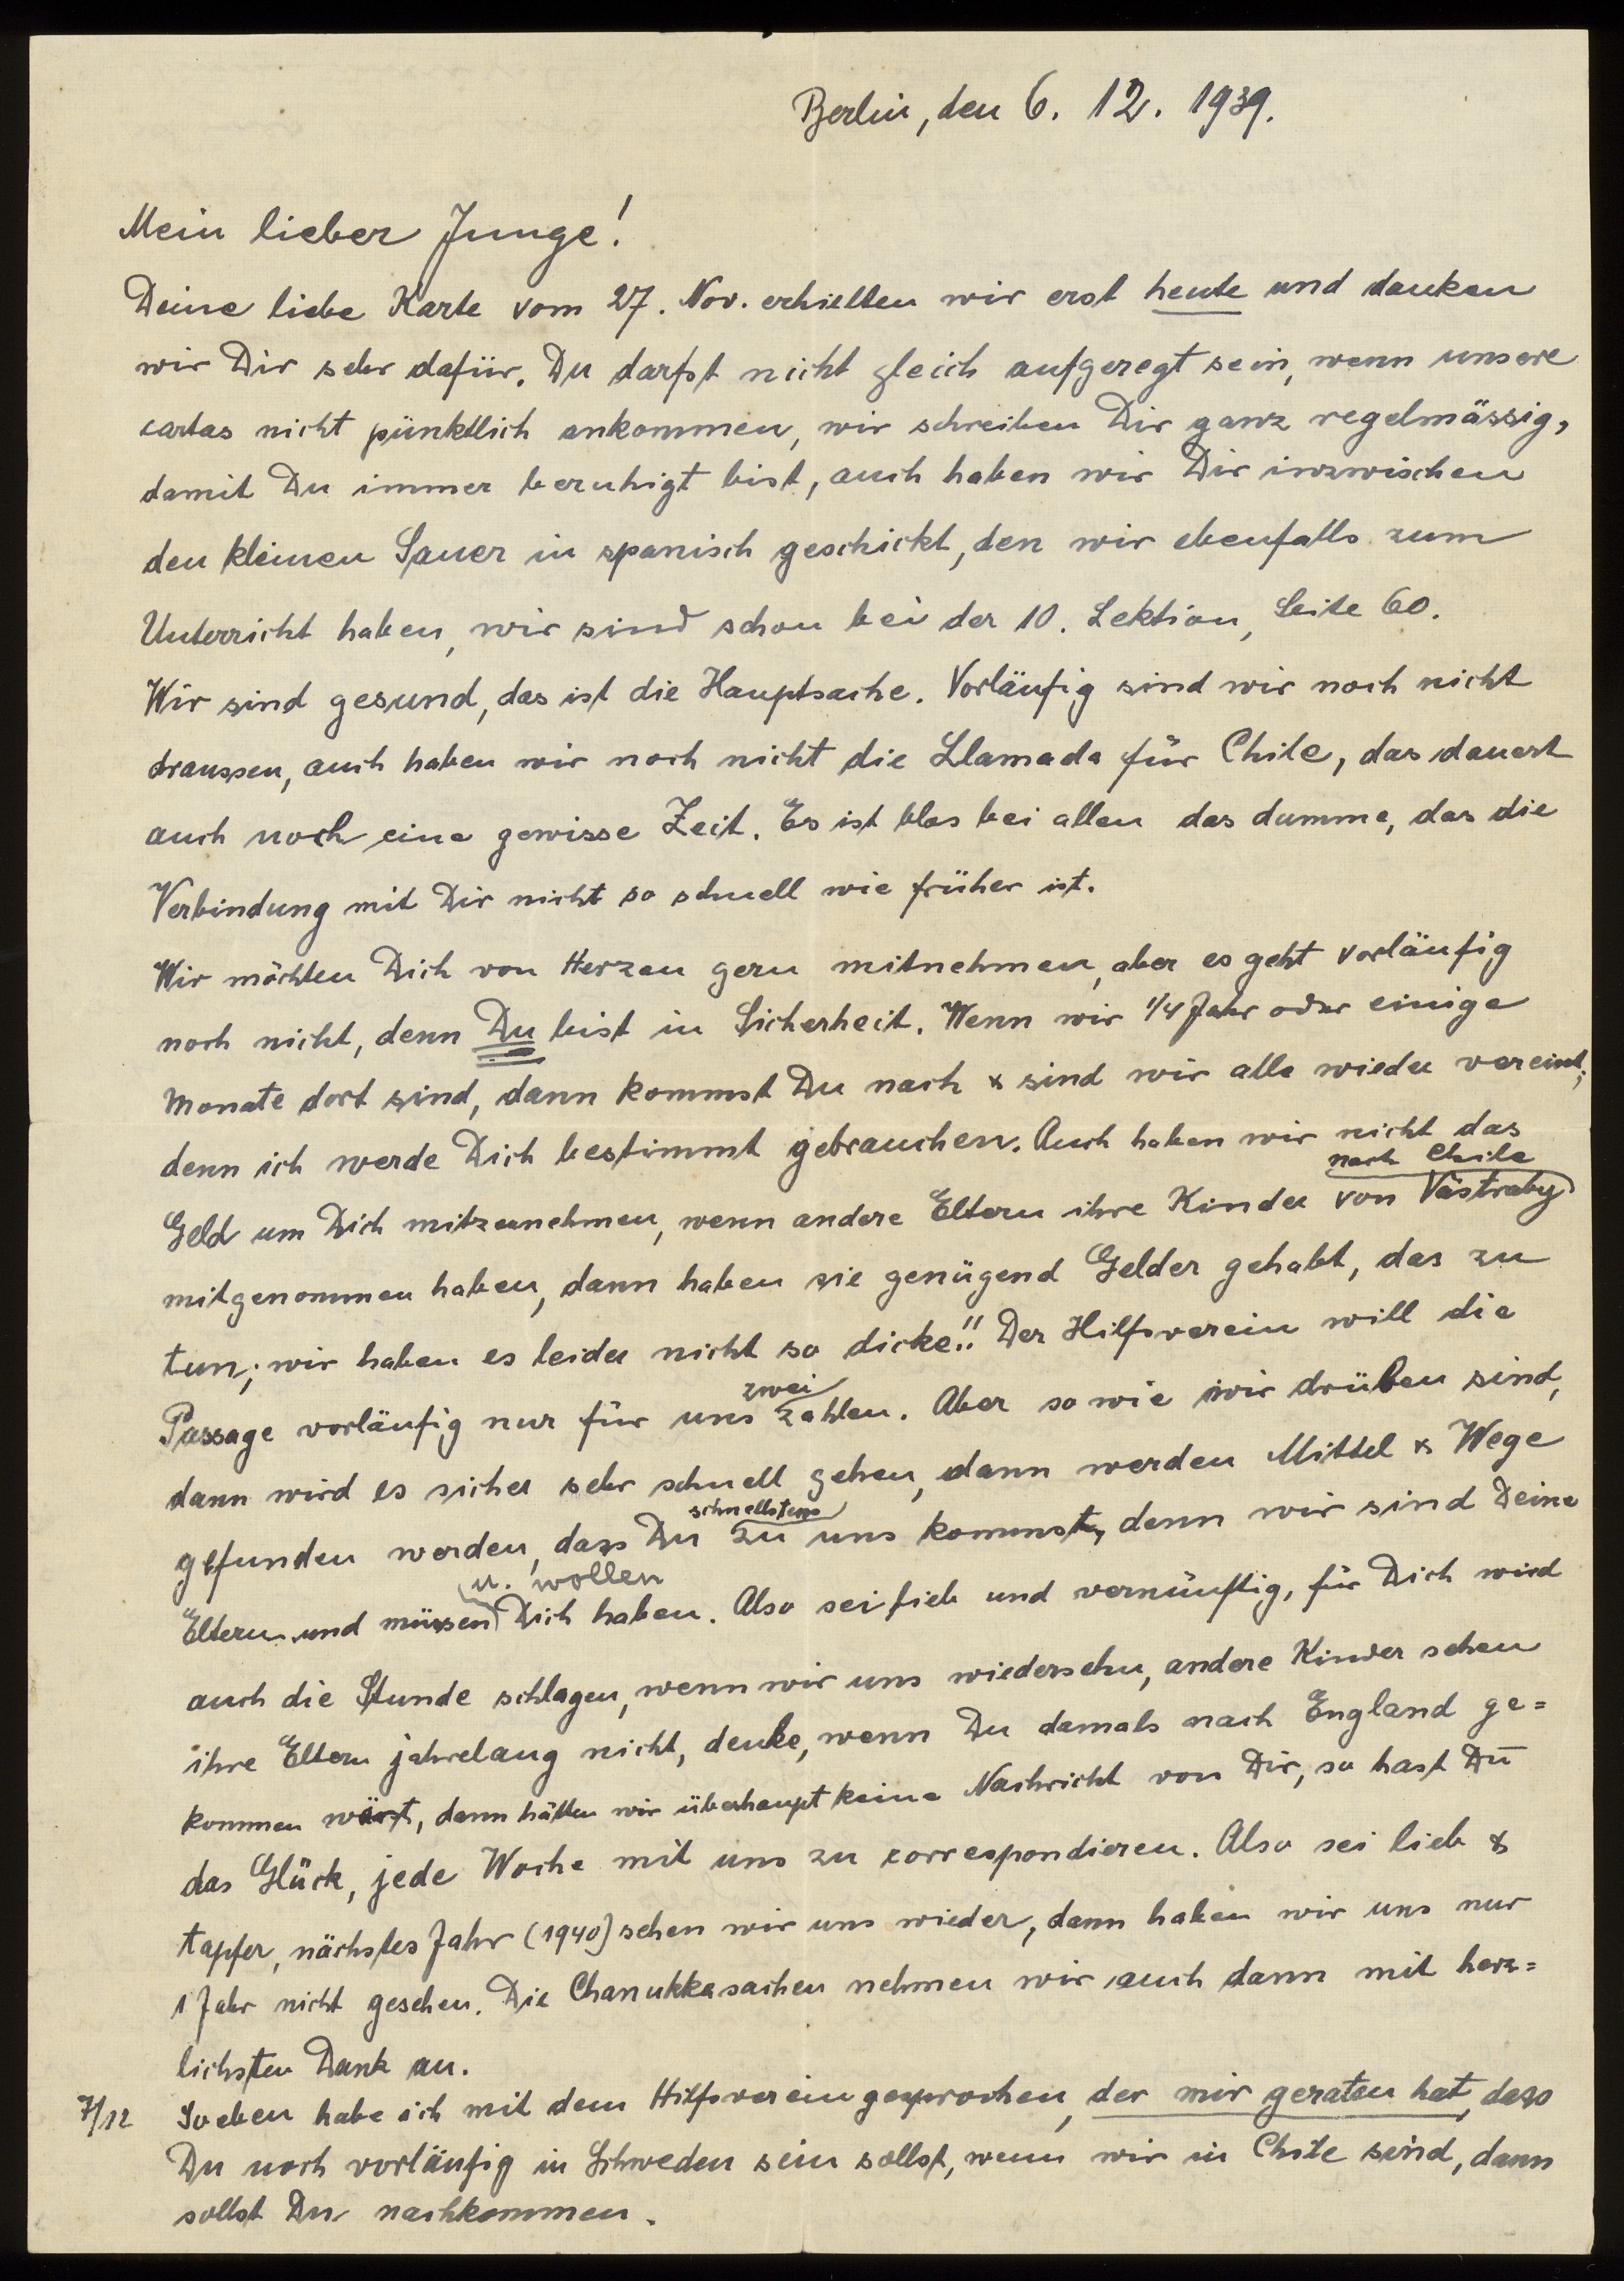 Berlin, den 6. 12. 1939.
Mein lieber Junge!
Deine liebe Karte vom 27. Nov. erhielten wir erst heute und danken
wir Dir sehr dafür. Du darfst nicht gleich aufgeregt sein, wenn unsere
cartas nicht pünktlich ankommen, wir schreiben Dir ganz regelmässig,
damit Du immer beruhigt bist, auch haben wir Dir inzwischen
den kleinen Sauer in spanisch geschickt, den wir ebenfalls zum
Unterricht haben, wir sind schon bei der 10. Lektion, Seite 60.
Wir sind gesund, das ist die Hauptsache. Vorläufig sind wir noch nicht
draussen, auch haben wir noch nicht die Llamada für Chile, das dauert
auch noch eine gewisse Zeit. Es ist blos bei allen das dumme, das die
Verbindung mit Dir nicht so schnell wie früher ist.
Wir möchten Dich von Herzen gern mitnehmen, aber es geht vorläufig
noch nicht, denn Du bist in Sicherheit. Wenn wir 1/4 Jahr oder einige
Monate dort sind, dann kommst Du nach & sind wir alle wieder vereint,
denn ich werde Dich bestimmt gebrauchen. Auch haben wir nicht das
nach Chile
Geld um Dich mitzunehmen, wenn andere Eltern ihre Kinder von Västraby
mitgenommen haben, dann haben sie genügend Gelder gehabt, das zu
tun; wir haben es leider nicht so dicke!! Der Hilfsverein will die
zwei
Passage vorläufig nur für uns zahlen. Aber so wie wir drüben sind,
dann wird es sicher sehr schnell gehen, dann werden Mittel & Wege
schnellstens
gefunden werden, dass Du zu uns kommst, denn wir sind Deine
u. wollen
Eltern und müssen Dich haben. Also sei lieb und vernünftig, für Dich wird
auch die Stunde schlagen, wenn wir uns wiedersehn, andere Kinder sehen
ihre Eltern jahrelang nicht, denke, wenn Du damals nach England ge=
kommen wärst, dann hätten wir überhaupt keine Nachricht von Dir, so hast Du
das Glück, jede Woche mit uns zu correspondieren. Also sei lieb &
tapfer, nächstes Jahr (1940) sehen wir uns wieder, dann haben wir uns nur
1 Jahr nicht gesehen. Die Chanukkasachen nehmen wir auch dann mit herz=
lichsten Dank an.
7/12 Soeben habe ich mit dem Hilfsverein gesprochen, der mir geraten hat, dass
Du noch vorläufig in Schweden sein sollst, wenn wir in Chile sind, dann
sollst Du nachkommen.